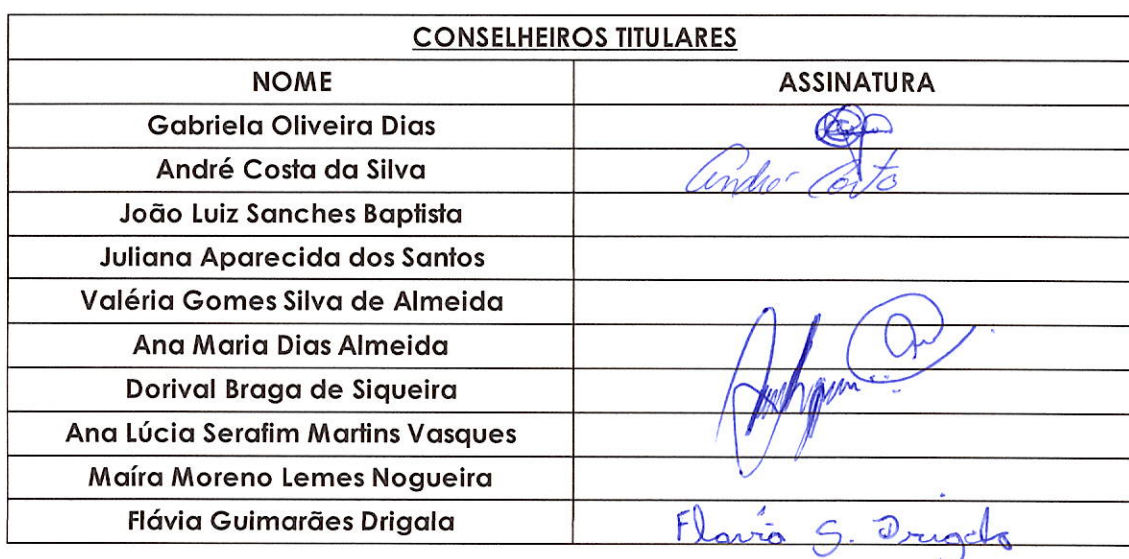 CONSELHEIROS TITULARES
NOME ASSINATURA
Gabriela Oliveira Dias
André Costa da Silva André Costa
João Luiz Sanches Baptista
Juliana Aparecida dos Santos
Valéria Gomes Silva de Almeida
Ana Maria Dias Almeida
Dorival Braga de Siqueira
Ana Lúcia Serafim Martins Vasques
Maíra Moreno Lemes Nogueira
Flávia Guimarães Drigala Flavia G. Drigala